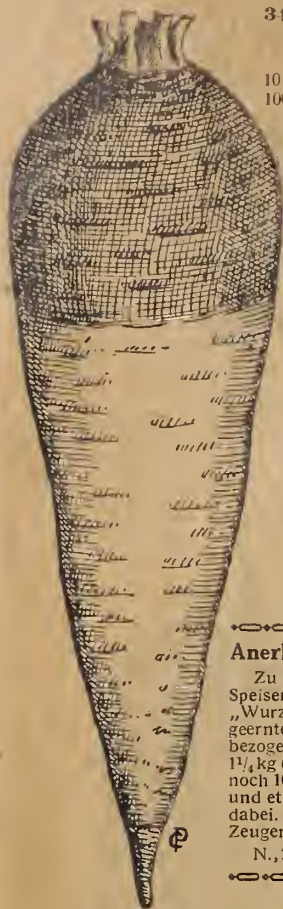 34
10
100
Anerk
Zu
Speiser
„Wurz
geernte
bezoge
1¼ kg
noch 10
und et
dabei.
Zeuger
N.,